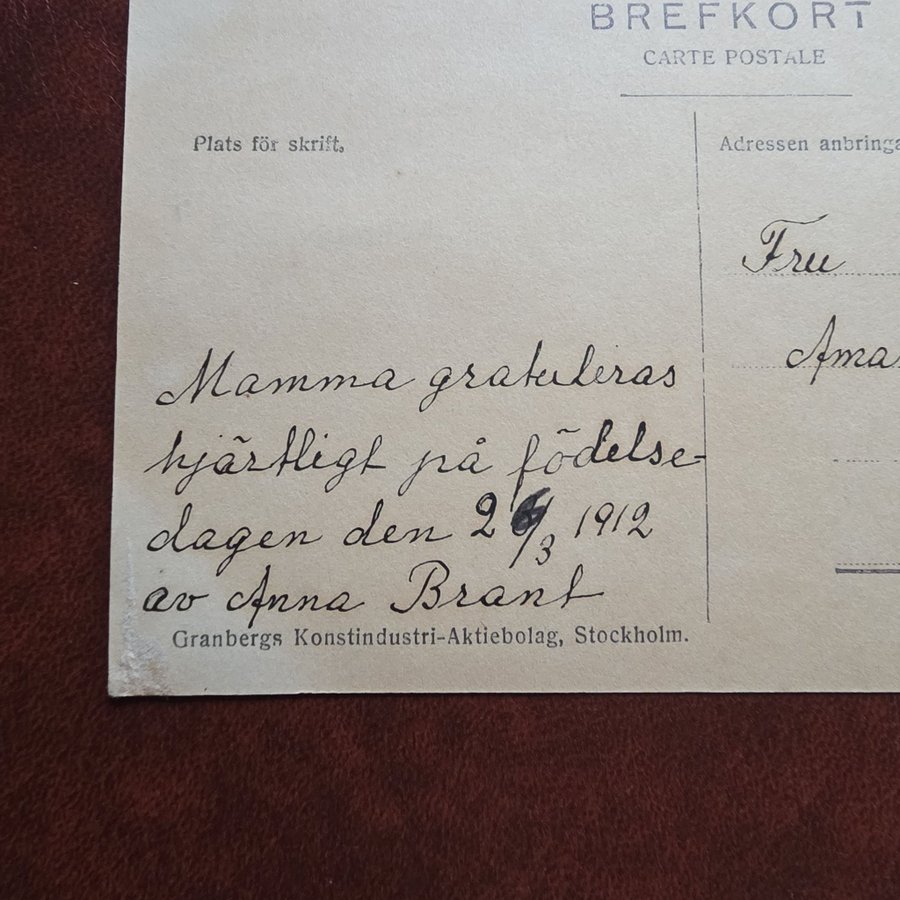 BREFKORT
CARTE POSTALE
Plats för skrift.
Adressen anbringa
Fru
Ama
Mamma gratuleras
hjärtligt på födelse-
dagen den 26/3 1912
av Anna Brant
Granbergs Konstindustri-Aktiebolag, Stockholm.